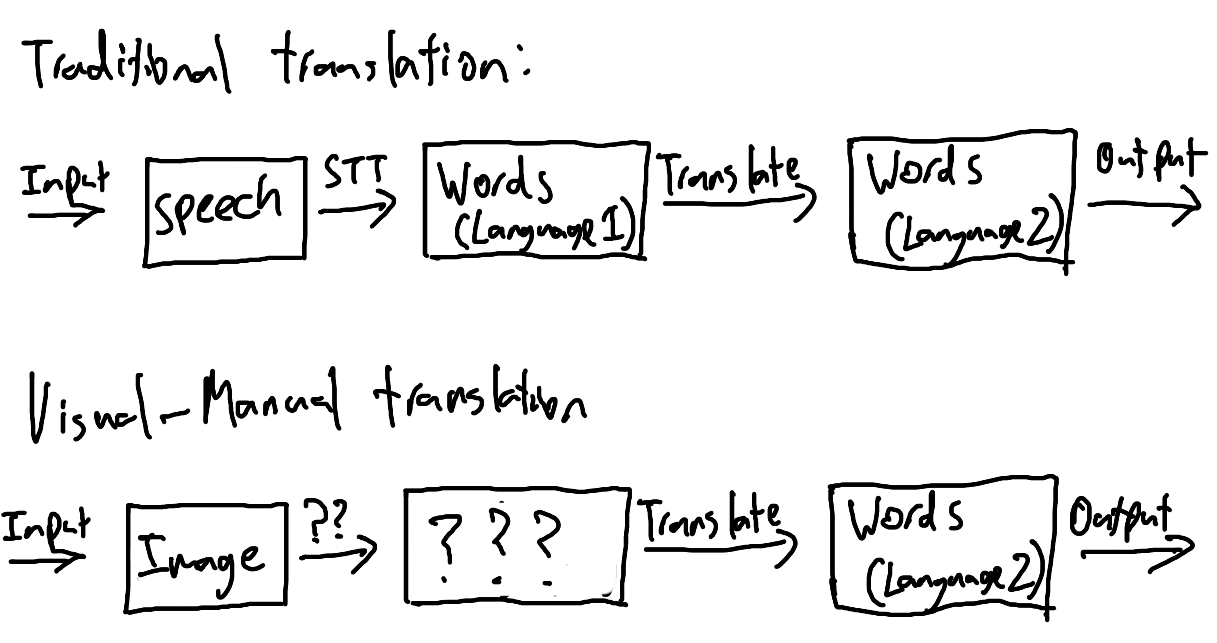 Traditional translation:
Input
speech
STT
Words
(Language 1)
Translate
Words
(Language 2)
Output
Visual-Manual translation
Input
Image
??
???
Translate
Words
(Language 2)
Output